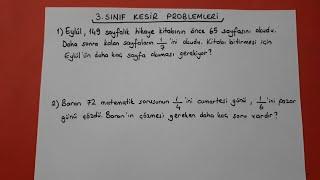 3. SINIF KESİR PROBLEMLERİ
1) Eylül, 149 sayfalık hikaye kitabının önce 65 sayfasını okudu.
Daha sonra kalan sayfaların 1/7 'ini okudu. Kitabı bitirmesi için
Eylül'ün daha kaç sayfa okuması gerekiyor?
2) Baran 72 matematik sorusunun 1/4 'ini cumartesi günü, 1/6 'ini pazar
günü çözdü. Baran'ın çözmesi gereken daha kaç soru vardır?